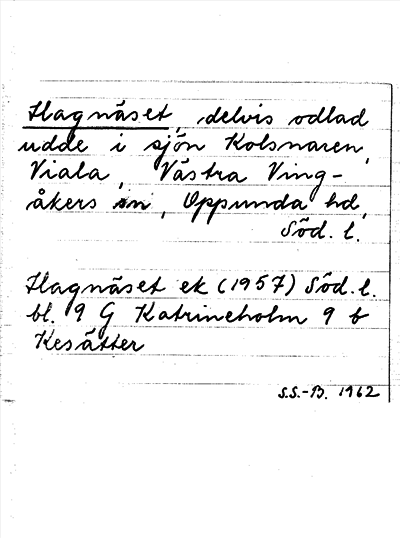 Hagnäset, delvis odlad
udde i sjön Kolsnaren,
Viala, Västra Ving-
åkers sn, Oppunda hd,
Söd. l.
Hagnäset ek (1957) Söd. l.
bl. 9 G Katrineholm 9 b
Kesätter
S.S.-B. 1962